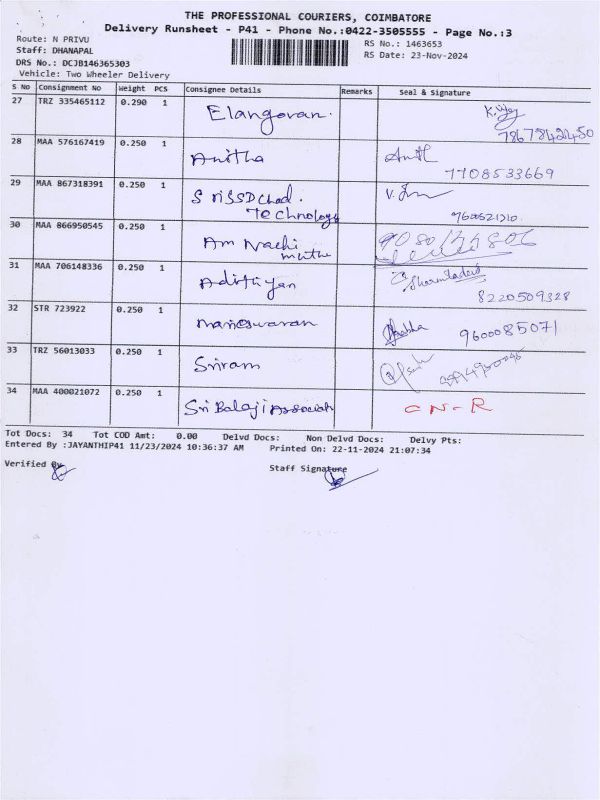 THE PROFESSIONAL COURIERS, COIMBATORE
Delivery Runsheet - P41 - Phone No.:0422-3505555 - Page No.:3
Route: N PRIVU
RS No.: 1463653
Staff: DHANAPAL
RS Date: 23-Nov-2024
DRS No.: DCJB146365303
Vehicle: Two Wheeler Delivery
S No Consignment No Weight PCS Consignee Details Remarks Seal & Signature
27 TRZ 335465112 0.290 1 Elangovan.
7867842450
28 MAA 576167419 0.250 1 Anitha
7708533669
29 MAA 867318391 0.250 1
Technology
30 MAA 866950545 0.250 1 Am Nachi
Muthu
31 MAA 706148336 0.250 1 Adithyan
8220509328
32 STR 723922 0.250 1 9600085071
33 TRZ 56013033 0.250 1 Sriram
34 MAA 400021072 0.250 1 Sri Balaji C-N-R
Tot Docs: 34 Tot COD Amt: 0.00 Delvd Docs: Non Delvd Docs: Delvy Pts:
Entered By :JAYANTHIP41 11/23/2024 10:36:37 AM Printed On: 22-11-2024 21:07:34
Verified By
Staff Signature